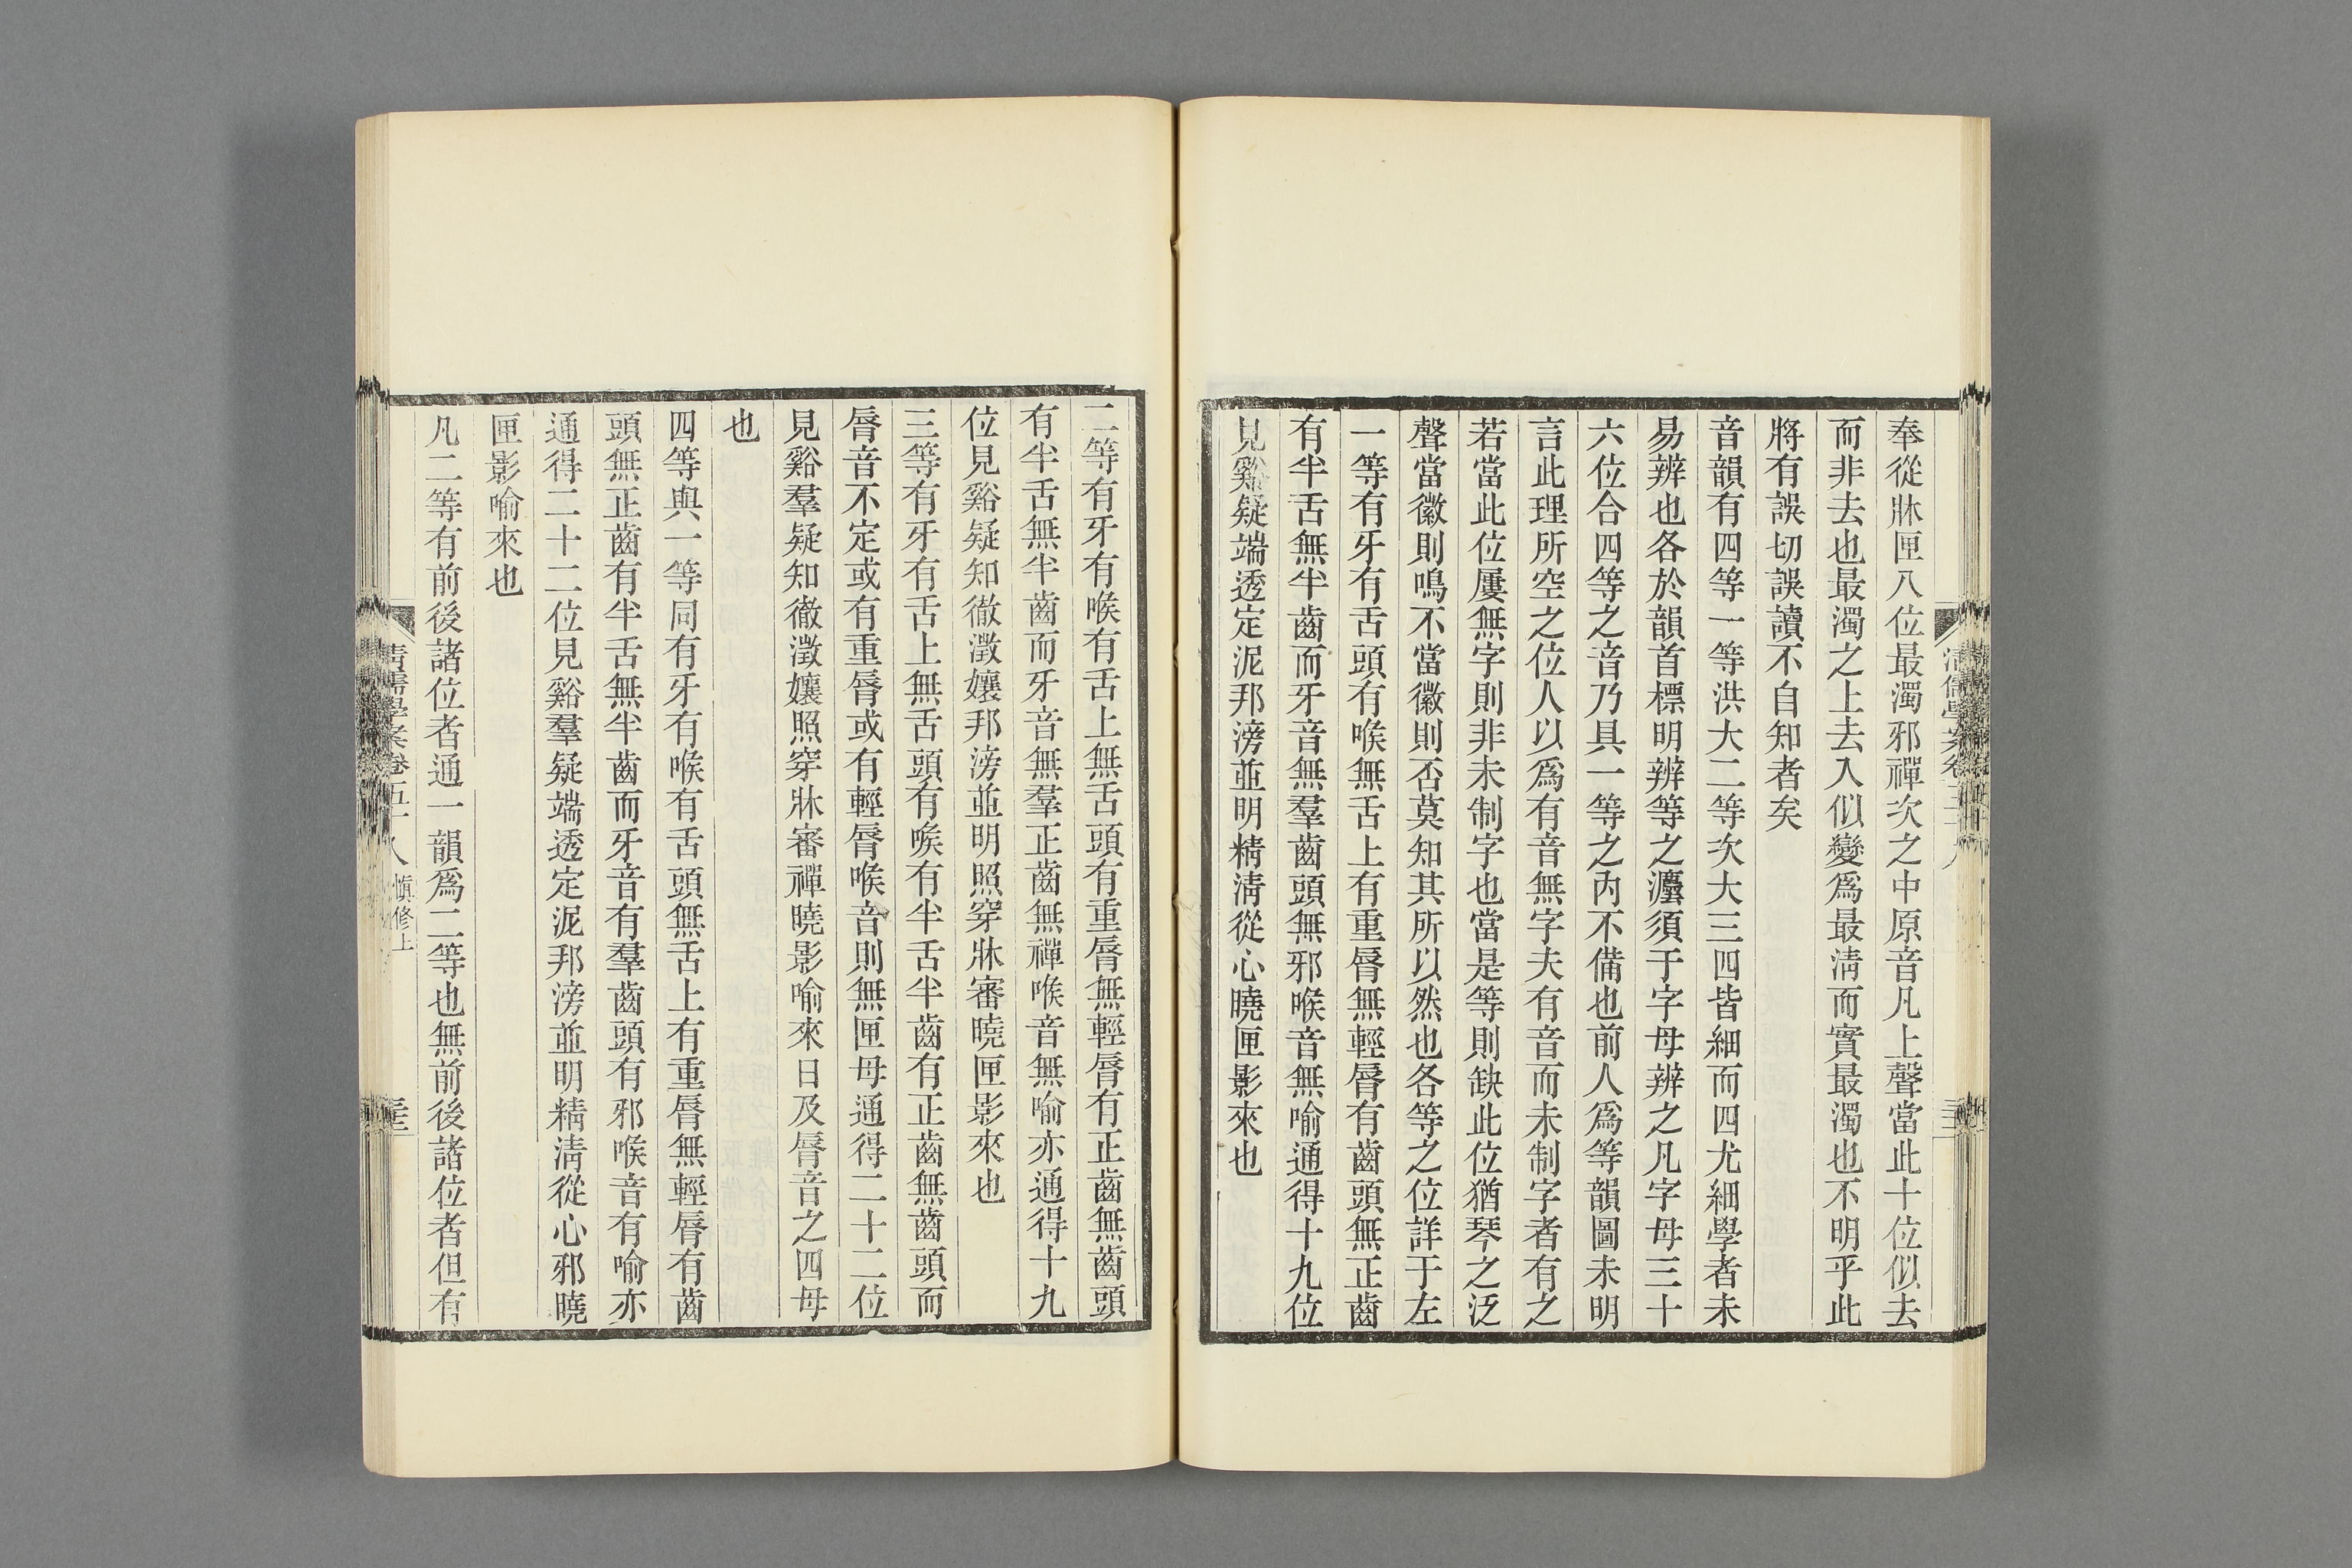 奉從牀匣八位最濁邪禪次之中原音凡上聲當此十位似去
而非去也最濁之上去入似變爲最淸而實最濁也不明乎此
將有誤切誤讀不自知者矣
音韻有四等一等洪大二等次大三四皆細而四尤細學者未
易辨也各於韻首標明辨等之灋須于字母辨之凡字母三十
六位合四等之音乃具一等之內不備也前人爲等韻圖未明
言此理所空之位人以爲有音無字夫有音而未制字者有之
若當此位屢無字則非未制字也當是等則缺此位猶琴之泛
聲當徽則鳴不當徽則否莫知其所以然也各等之位詳于左
一等有牙有舌頭有喉無舌上有重脣無輕脣有齒頭無正齒
有半舌無半齒而牙音無羣齒頭無邪喉音無喻通得十九位
見谿疑端透定泥邦滂並明精淸從心曉匣影來也
二等有牙有喉有舌上無舌頭有重脣無輕脣有正齒無齒頭
有半舌無半齒而牙音無羣正齒無禪喉音無喻亦通得十九
位見谿疑知徹澂孃邦滂並明照穿牀審曉匣影來也
三等有牙有舌上無舌頭有喉有半舌半齒有正齒無齒頭而
脣音不定或有重脣或有輕脣喉音則無匣母通得二十二位
見谿羣疑知徹澂孃照穿牀審禪曉影喻來日及脣音之四母
也
四等與一等同有牙有喉有舌頭無舌上有重脣無輕脣有齒
頭無正齒有半舌無半齒而牙音有羣齒頭有邪喉音有喻亦
通得二十二位見谿羣疑端透定泥邦滂並明精淸從心邪曉
匣影喻來也
凡二等有前後諸位者通一韻爲二等也無前後諸位者但有
淸儒學案卷五十八 愼修上